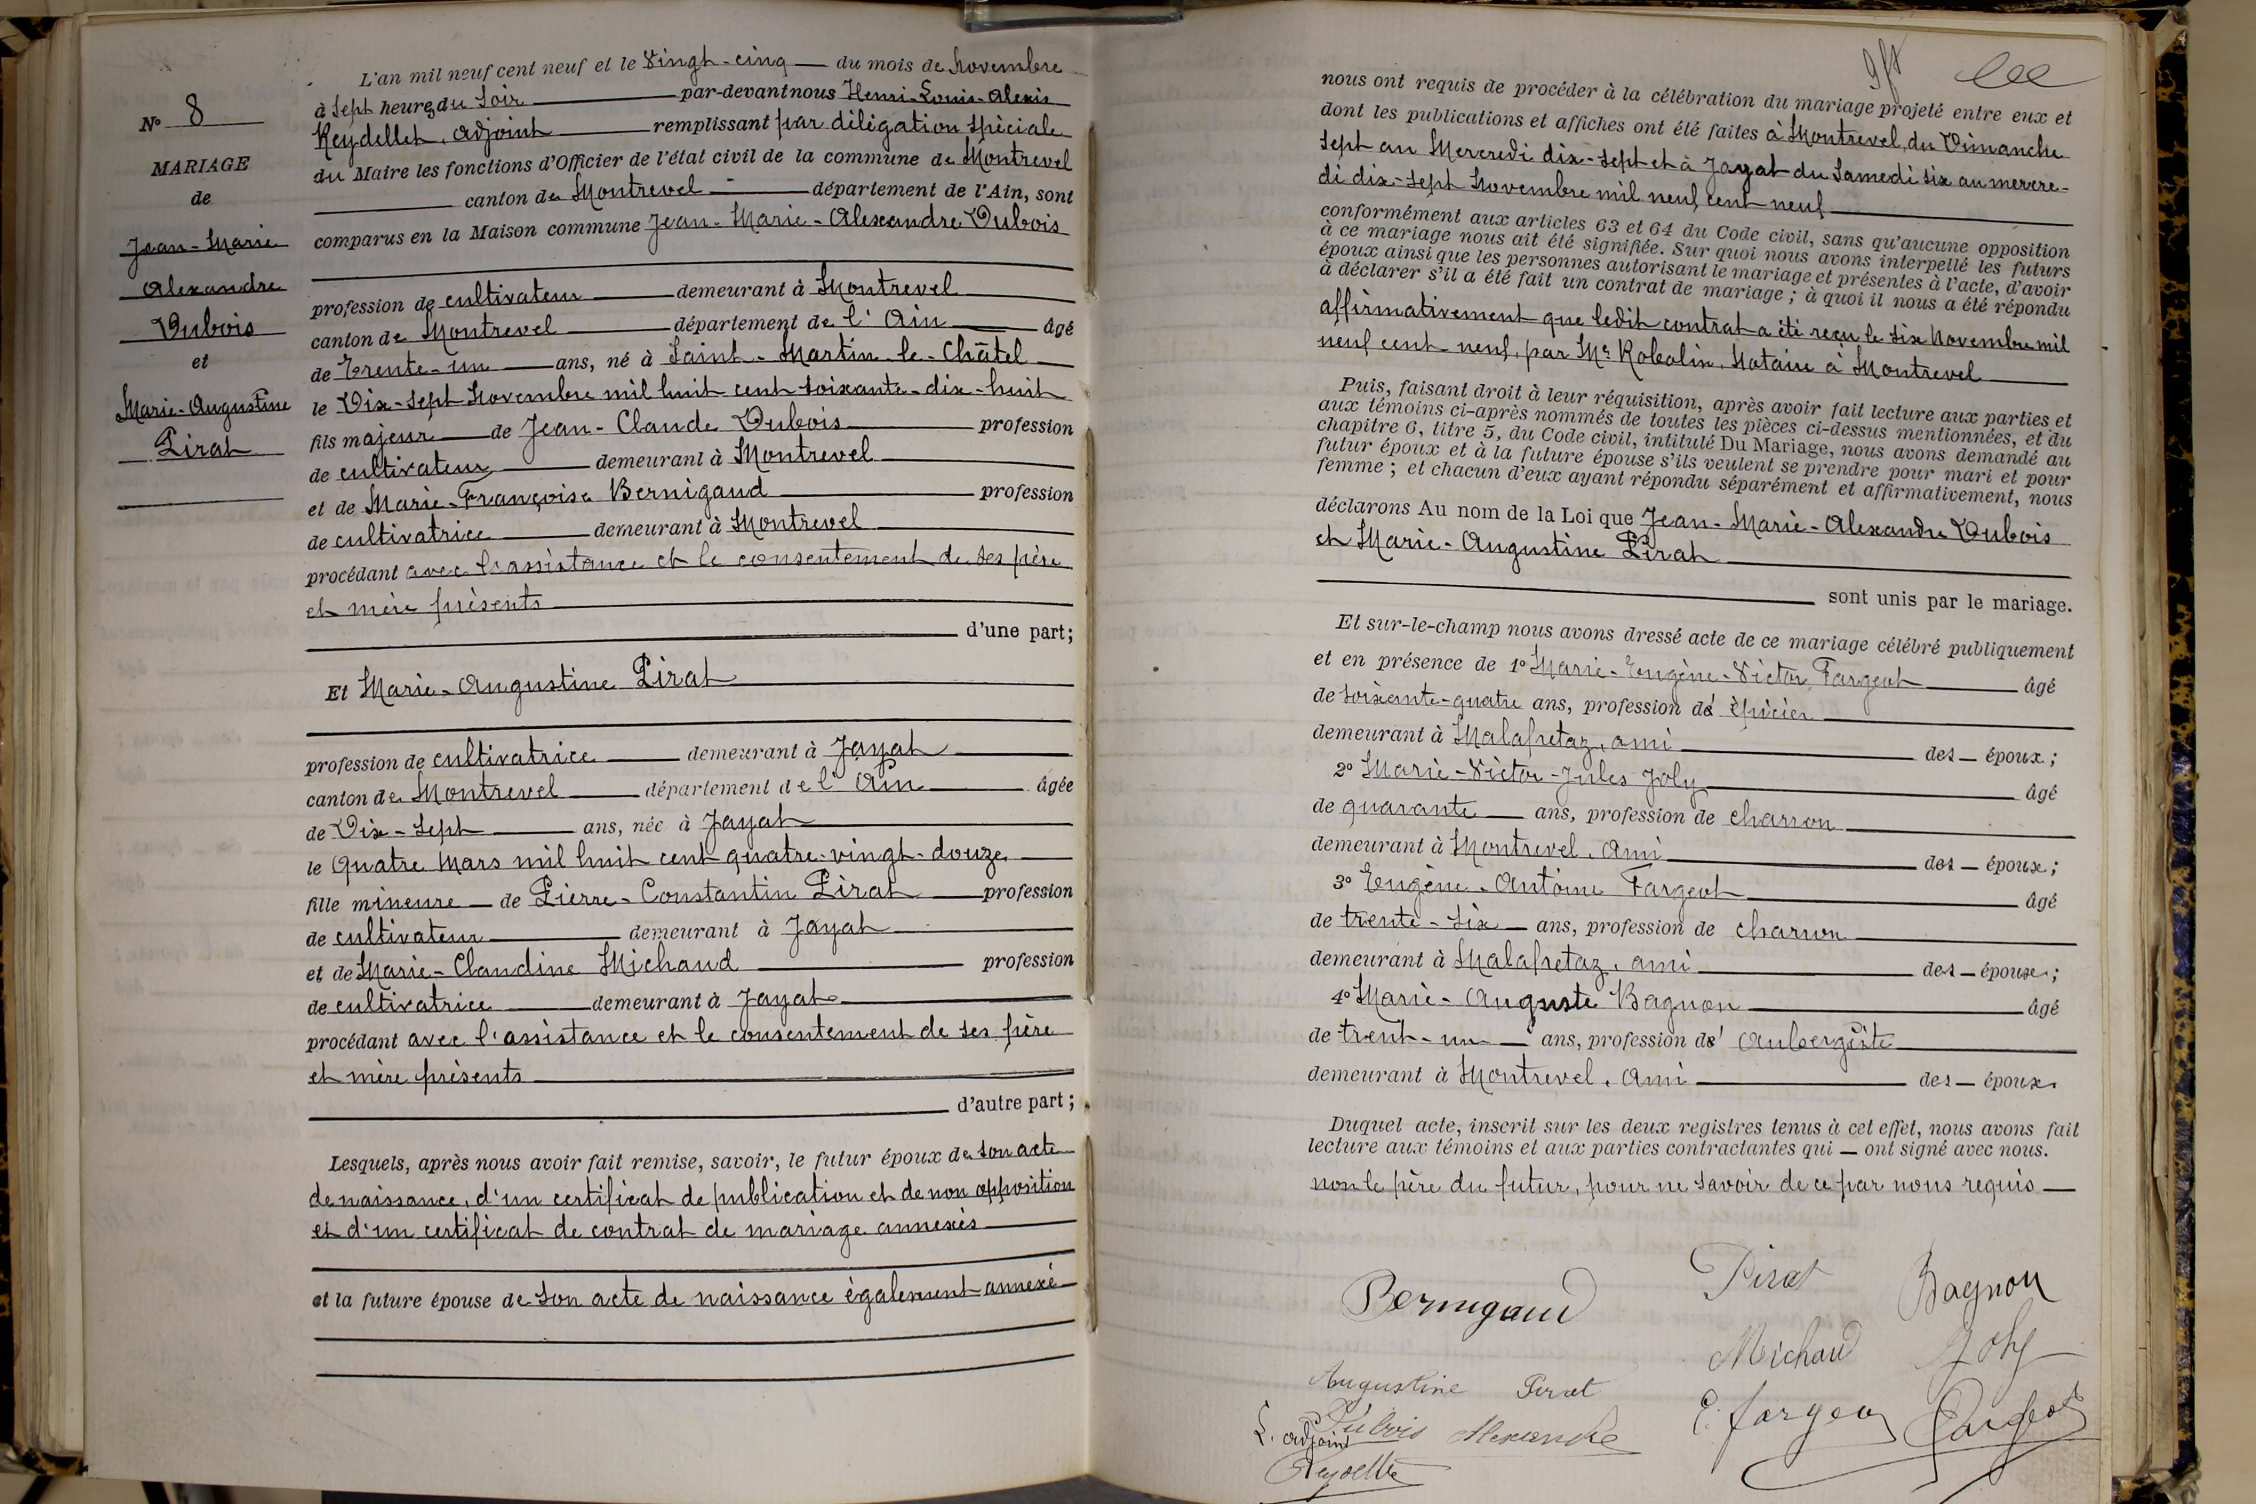 N° 8
MARIAGE
de
Jean-Marie
Alexandre
Dubois
et
Marie-Augustine
Pirat
L'an mil neuf cent neuf et le Vingt-cinq du mois de Novembre
à Sept heures du Soir par-devant nous Henri-Louis-Alexis
Reydellet, adjoint remplissant par délégation spéciale
du Maire les fonctions d'Officier de l'état civil de la commune de Montrevel
canton de Montrevel département de l'Ain, sont
comparus en la Maison commune Jean-Marie-Alexandre Dubois
profession de cultivateur demeurant à Montrevel
canton de Montrevel département de l'Ain âgé
de Trente-un ans, né à Saint-Martin-le-Châtel
le Dix-sept Novembre mil huit cent soixante-dix-huit
fils majeur de Jean-Claude Dubois profession
de cultivateur demeurant à Montrevel
et de Marie-Françoise Bernigaud profession
de cultivatrice demeurant à Montrevel
procédant avec l'assistance et le consentement de ses père
et mère présents
d'une part;
Et Marie-Augustine Pirat
profession de cultivatrice demeurant à Jayat
canton de Montrevel département de l'Ain âgée
de Dix-sept ans, née à Jayat
le Quatre Mars mil huit cent quatre-vingt-douze
fille mineure de Pierre-Constantin Pirat profession
de cultivateur demeurant à Jayat
et de Marie-Claudine Michaud profession
de cultivatrice demeurant à Jayat
procédant avec l'assistance et le consentement de ses père
et mère présents
d'autre part;
Lesquels, après nous avoir fait remise, savoir, le futur époux de son acte
de naissance, d'un certificat de publication et de non opposition
et d'un certificat de contrat de mariage annexés
et la future épouse de son acte de naissance également annexé
nous ont requis de procéder à la célébration du mariage projeté entre eux et
dont les publications et affiches ont été faites à Montrevel, du Dimanche
sept au Mercredi dix-sept et à Jayat du Samedi six au mercre-
di dix-sept Novembre mil neuf cent neuf
conformément aux articles 63 et 64 du Code civil, sans qu'aucune opposition
à ce mariage nous ait été signifiée. Sur quoi nous avons interpellé les futurs
époux ainsi que les personnes autorisant le mariage et présentes à l'acte, d'avoir
à déclarer s'il a été fait un contrat de mariage; à quoi il nous a été répondu
affirmativement que ledit contrat a été reçu le six Novembre mil
neuf cent neuf, par Me Robolin, Notaire à Montrevel
Puis, faisant droit à leur réquisition, après avoir fait lecture aux parties et
aux témoins ci-après nommés de toutes les pièces ci-dessus mentionnées, et du
chapitre 6, titre 5, du Code civil, intitulé Du Mariage, nous avons demandé au
futur époux et à la future épouse s'ils veulent se prendre pour mari et pour
femme; et chacun d'eux ayant répondu séparément et affirmativement, nous
déclarons Au nom de la Loi que Jean-Marie-Alexandre Dubois
et Marie-Augustine Pirat
sont unis par le mariage.
Et sur-le-champ nous avons dressé acte de ce mariage célébré publiquement
et en présence de 1° Marie-Eugène-Victor Fargeot âgé
de soixante-quatre ans, profession d' Epicier
demeurant à Malafretaz, ami des époux;
2° Marie-Victor-Jules Joly âgé
de quarante ans, profession de charron
demeurant à Montrevel, ami des époux;
3° Eugène-Antoine Fargeot âgé
de trente-six ans, profession de charron
demeurant à Malafretaz, ami des époux;
4° Marie-Auguste Bagnon âgé
de trent-un ans, profession d' Aubergiste
demeurant à Montrevel, ami des époux.
Duquel acte, inscrit sur les deux registres tenus à cet effet, nous avons fait
lecture aux témoins et aux parties contractantes qui ont signé avec nous.
non le père du futur, pour ne savoir de ce par nous requis
Bernigaud Pirat Bagnon
Michaud Joly
Augustine Pirat
Dubois Alexandre E. fargeot Fargeot
L. adjoint
Reydellet